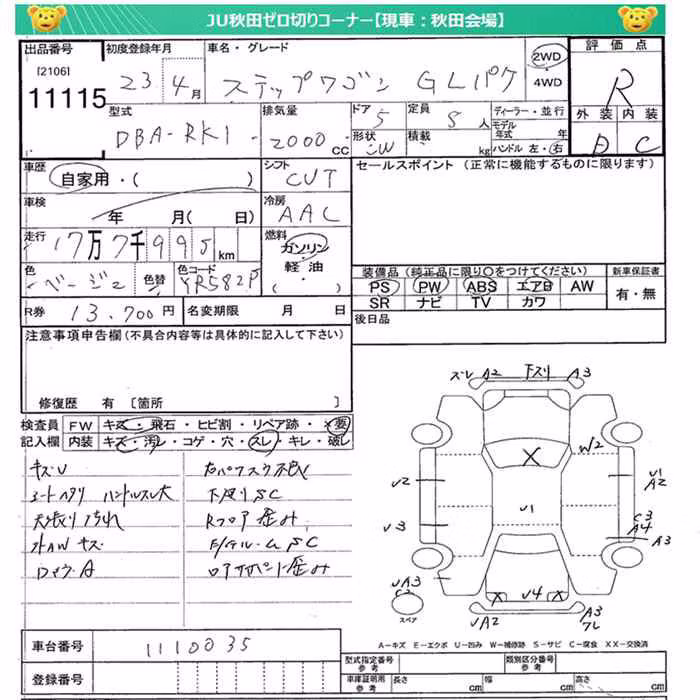 JU秋田ゼロ切りコーナー【現車：秋田会場】
出品番号 初度登録年月 車名・グレード 評価点
[2106] 11115 23 4月 ステップワゴン GLパケ 2WD 4WD R
型式 排気量 ドア 定員 ディーラー・並行 外装 内装
DBA-RK1 2000 CC 5 8人 モデル年式 年 D C
形状 積載 kg ハンドル 左・右
車歴 シフト セールスポイント (正常に機能するものに限ります)
自家用・( ) CVT
車検 冷房
年 月( 日) AAC
走行 燃料
17万7千995km ガソリン・軽油・( )
色 色替 色コード 装備品 (純正品に限り○をつけてください) 新車保証書
ベージュ YR582P PS PW ABS エアB AW 有・無
SR ナビ TV カワ
R券 13,700円 名変期限 月 日 後日品
注意事項申告欄 (不具合内容等は具体的に記入して下さい)
修復歴 有 [箇所 ]
検査員 FW キズ・飛石・ヒビ割・リペア跡・×要
記入欄 内装 キズ・汚レ・コゲ・穴・スレ・キレ・破レ
キズU
シートヘタリ ハンドルスレ大 下廻りSC
天張り汚れ Rフロア歪み
外AW キズ
ズレ A2 下スリ A3
X W2
U2 U1 U1 A2
U3 C3 A4 A3
UA3 C2 U4
スペア UA2 A3 ワレ
A-キズ E-エクボ U-凹み W-補修跡 S-サビ C-腐食 XX-交換済
車台番号 1110035
型式指定番号 参考 類別区分番号 参考
登録番号 車庫証明用 参考 長さ cm 幅 cm 高さ cm